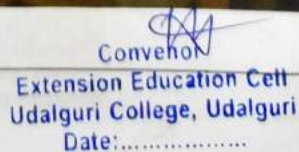 Convenor
Extension Education Cell
Udalguri College, Udalguri
Date:..................